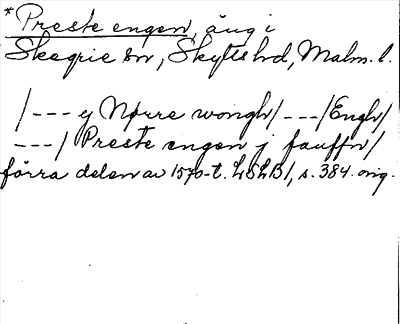 * Preste engen, äng i
Skegrie sn, Skytts hd, Malm. l.
/--- y Nørre wongh/---/Engh/
---/ Preste engen j fauffn/
förra delen av 1570-t. LSLB1, s. 384. orig.